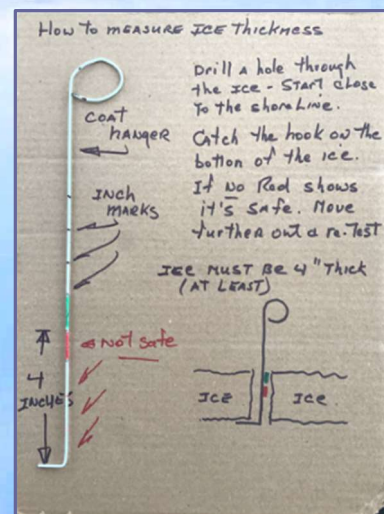 How to MEASURE ICE THICKNESS
Drill a hole through
the ICE - START CLOSE
To the shoreline.
Catch the hook on the
botton of the ice.
If No Red shows
it's safe. Move
further out a re-Test
COAT
HANGER
INCH
MARKS
ICE MUST BE 4" Thick
(AT LEAST)
Not safe
4
INCHES
ICE
ICE